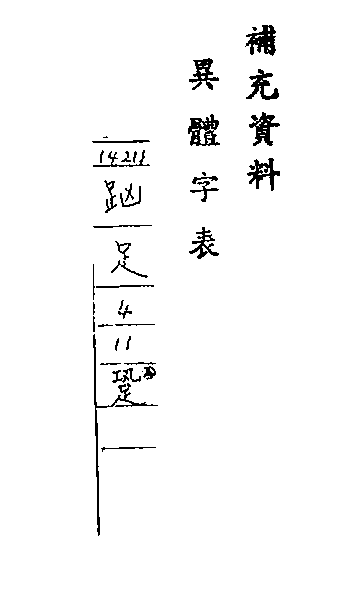 補充資料
異體字表
14211
足
4
11
跫